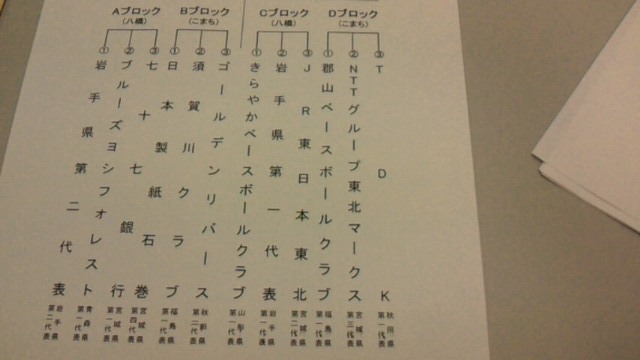 Aブロック
(八橋)
Bブロック
(こまち)
Cブロック
(八橋)
Dブロック
(こまち)
① 岩手県第二代表
岩手県
第二代表
② ブルーズヨシフォレスト
青森県
第一代表
③ 七十七銀行
宮城県
第一代表
① 日本製紙石巻
宮城県
第四代表
② 須賀川クラブ
福島県
③ ゴールデンリバース
秋田県
第二代表
① きらやかベースボールクラブ
山形県
第一代表
② 岩手県第一代表
岩手県
第一代表
③ JR東日本東北
宮城県
第二代表
① 郡山ベースボールクラブ
福島県
第一代表
② NTTグループ東北マークス
宮城県
第三代表
③ TDK
秋田県
第一代表